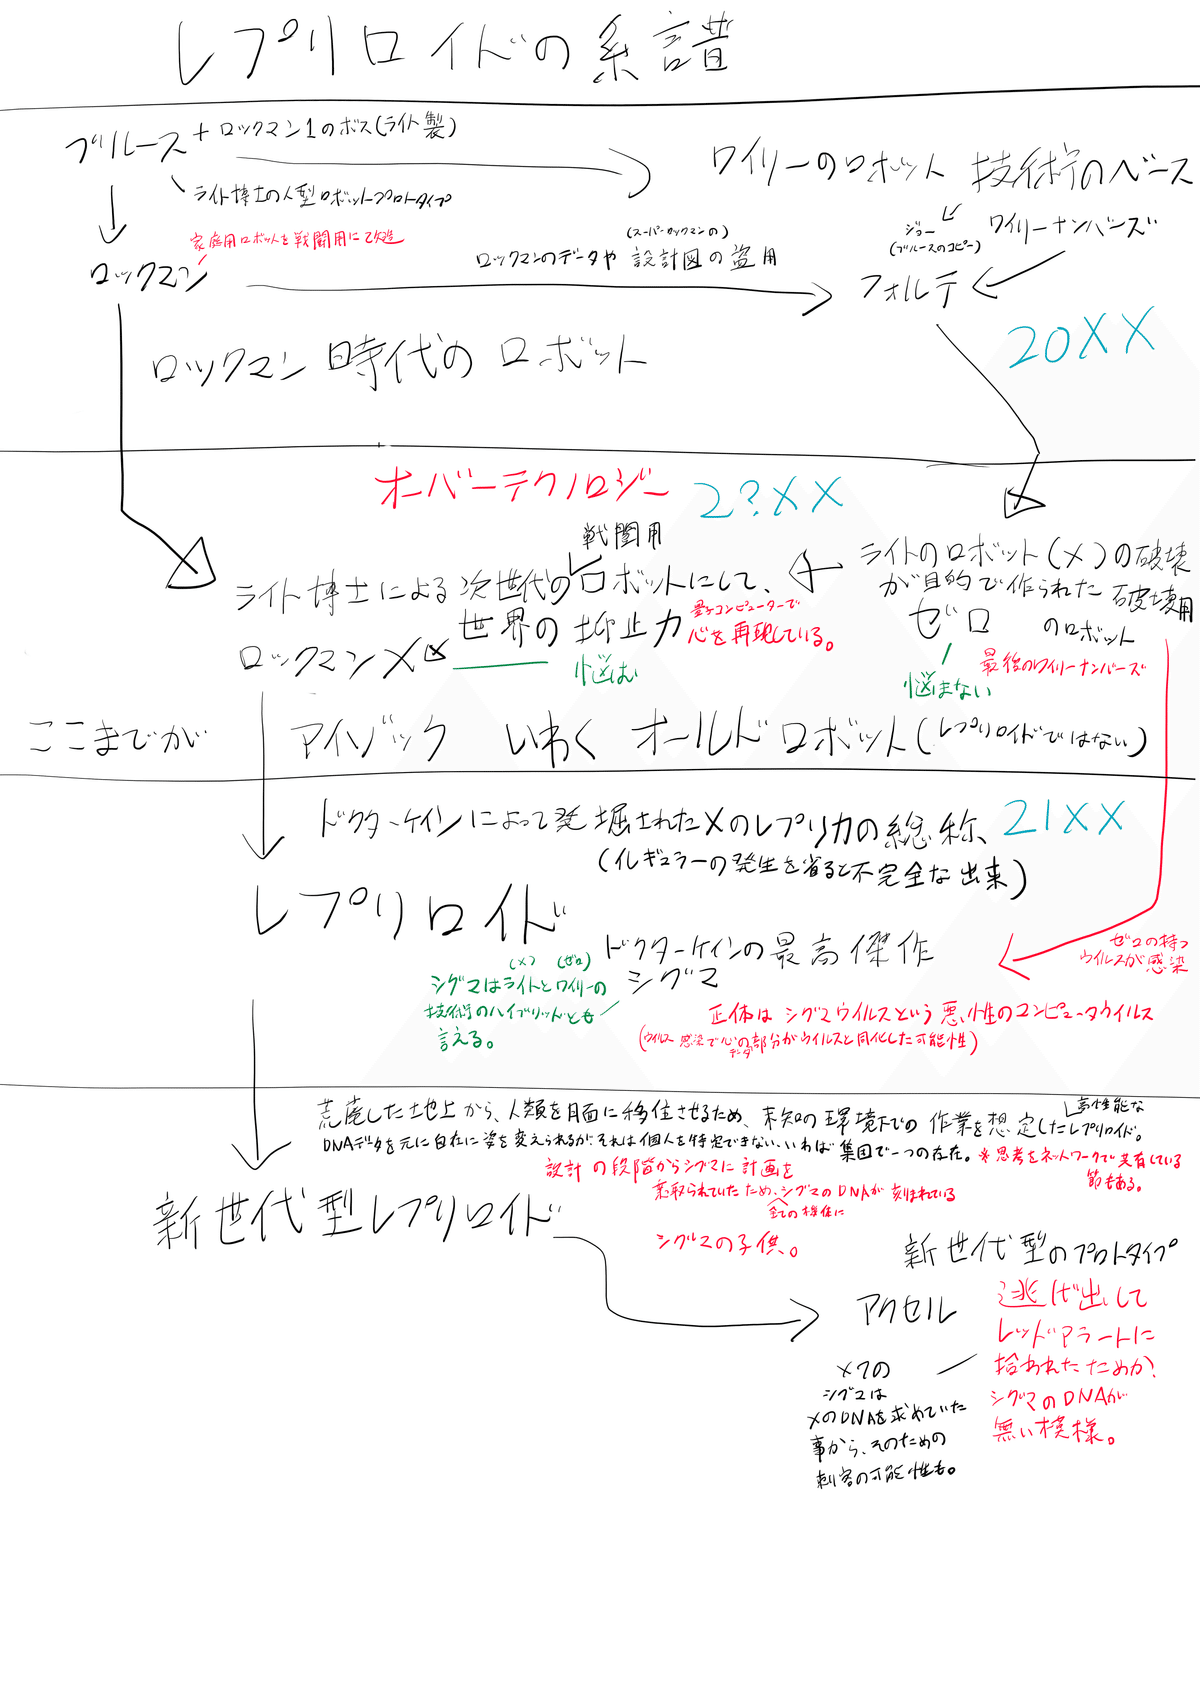 レプリロイドの系譜
ブルース+ロックマン1のボス(ライト製)
ワイリーのロボット 技術のベース
ライト博士の人型ロボットプロトタイプ
ジョー
(ブルースのコピー)
ワイリーナンバーズ
家庭用ロボットを戦闘用に改造
ロックマン
(スーパーロックマンの)
ロックマンのデータや設計図の盗用
フォルテ
20XX
ロックマン時代のロボット
オーバーテクノロジー
2?XX
戦闘用
ライト博士による次世代のロボットにして、
世界の抑止力
量子コンピューターで
心を再現している。
ロックマンX
悩む
ライトのロボット(X)の破壊
が目的で作られた破壊用
ゼロ のロボット
最後のワイリーナンバーズ
悩まない
ここまでが アイゾック いわく オールドロボット(レプリロイドではない)
ドクターケインによって発掘されたXのレプリカの総称、
21XX
(イレギュラーの発生を省ると不完全な出来)
レプリロイド
ドクターケインの最高傑作
シグマ
(X) (ゼロ)
シグマはライトとワイリーの
技術のハイブリッドとも
言える。
ゼロの持つ
ウイルスが感染
正体はシグマウイルスという悪性のコンピュータウイルス
(ウイルス感染で心の部分がウイルスと同化した可能性)
データ
荒廃した地上から、人類を月面に移住させるため、未知の環境下での作業を想定したレプリロイド。
高性能な
DNAデータを元に自在に姿を変えられるが、それは個人を特定できない、いわば集団で一つの存在。
※思考をネットワークで共有している
節もある。
設計の段階からシグマに計画を
乗取られていたため、シグマのDNAが刻まれている
全ての機体に
新世代型レプリロイド
シグマの子供。
新世代型のプロトタイプ
アクセル
逃げ出して
レッドアラートに
拾われたためか、
シグマのDNAが
無い模様。
X7の
シグマは
XのDNAを求めていた
事から、そのための
刺客の可能性も。